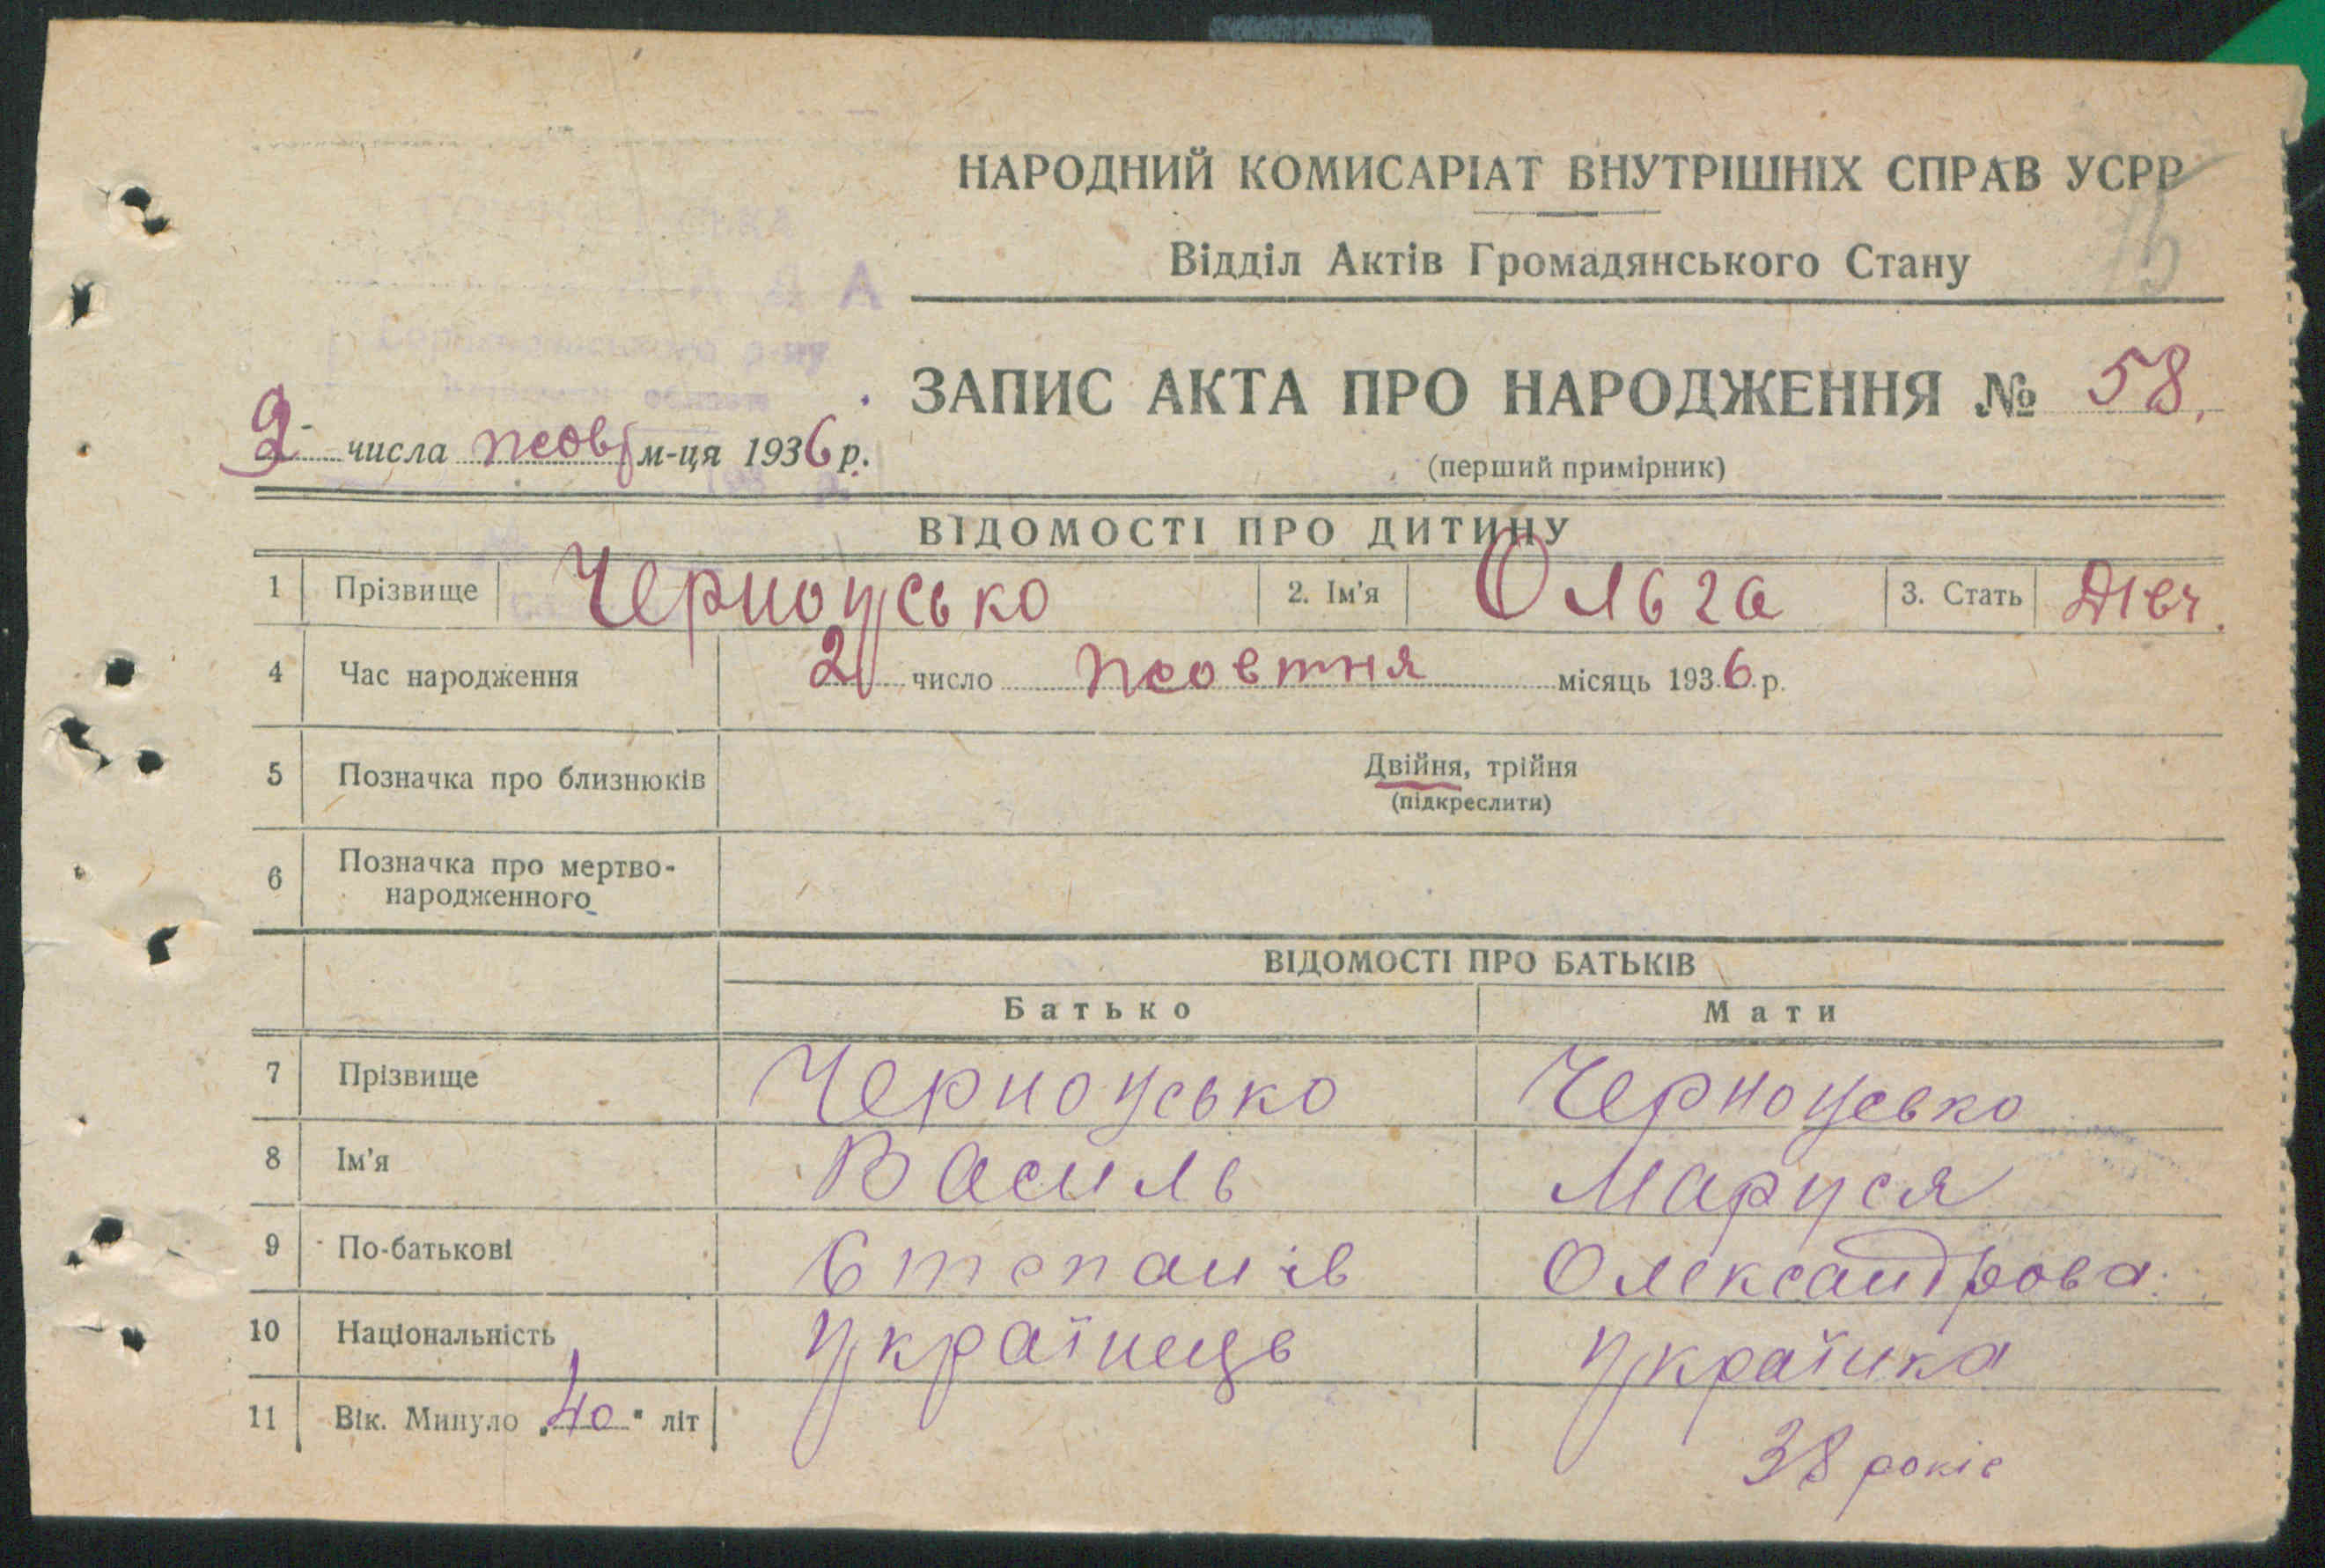 НАРОДНИЙ КОМИСАРІАТ ВНУТРІШНІХ СПРАВ УСРР
Відділ Актів Громадянського Стану
ЗАПИС АКТА ПРО НАРОДЖЕННЯ № 58.
числа жовт м-ця 1936 р.
(перший примірник)
ВІДОМОСТІ ПРО ДИТИНУ
1 Прізвище Черноусько 2. Ім'я Ольга 3. Стать Дівч.
4 Час народження 2 число жовтня місяць 1936 р.
5 Позначка про близнюків Двійня, трійня
(підкреслити)
6 Позначка про мертво-
народженного
ВІДОМОСТІ ПРО БАТЬКІВ
Батько Мати
7 Прізвище Черноусько Черноусько
8 Ім'я Василь Маруся
9 По-батькові Степанів Олександрова
10 Національність Українець Українка
11 Вік. Минуло „40" літ 38 років